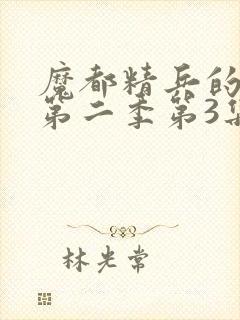 魔都精兵的
第二季第3集
林光常